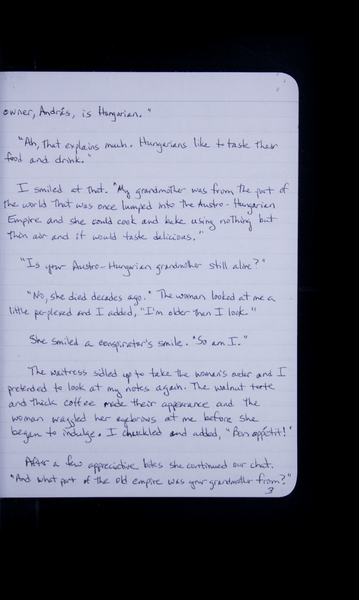 owner, András, is Hungarian."
"Ah, that explains much. Hungarians like to taste their
food and drink."
I smiled at that. "My grandmother was from the part of
the world that was once lumped into the Austro-Hungarian
Empire and she could cook and bake using nothing but
thin air and it would taste delicious."
"Is your Austro-Hungarian grandmother still alive?"
"No, she died decades ago." The woman looked at me a
little perplexed and I added, "I'm older than I look."
She smiled a conspirator's smile. "So am I."
The waitress sidled up to take the woman's order and I
pretended to look at my notes again. The walnut torte
and thick coffee made their appearance and the
woman waggled her eyebrows at me before she
began to indulge. I chuckled and added, "Bon appétit!"
After a few appreciative bites she continued our chat.
"And what part of the old empire was your grandmother from?"
3